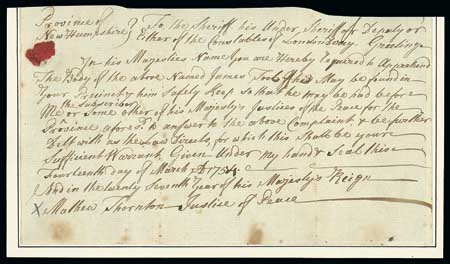 Province of
New Hampshire } To the Sheriff his Under Sheriff or Deputy or
Either of the Constables of Londonderry Greeting
In his Majesties Name you are Hereby required to Apprehend
The Body of the above Named James if he May be found in
Your Precinct & him Safely Keep so that he may be had before
the Subscriber
Me or Some other of his Majesty's Justices of the Peace for the
Province afores.d to answer to the above Complaint & be further
Delt with as the Law Directs, for which this Shall be your
Sufficient Warrant. Given Under my hand & Seal this
Fourteenth day of March 1754
And in the twenty Seventh Year of his Majesty's Reign
x Mathew Thornton Justice of Peace